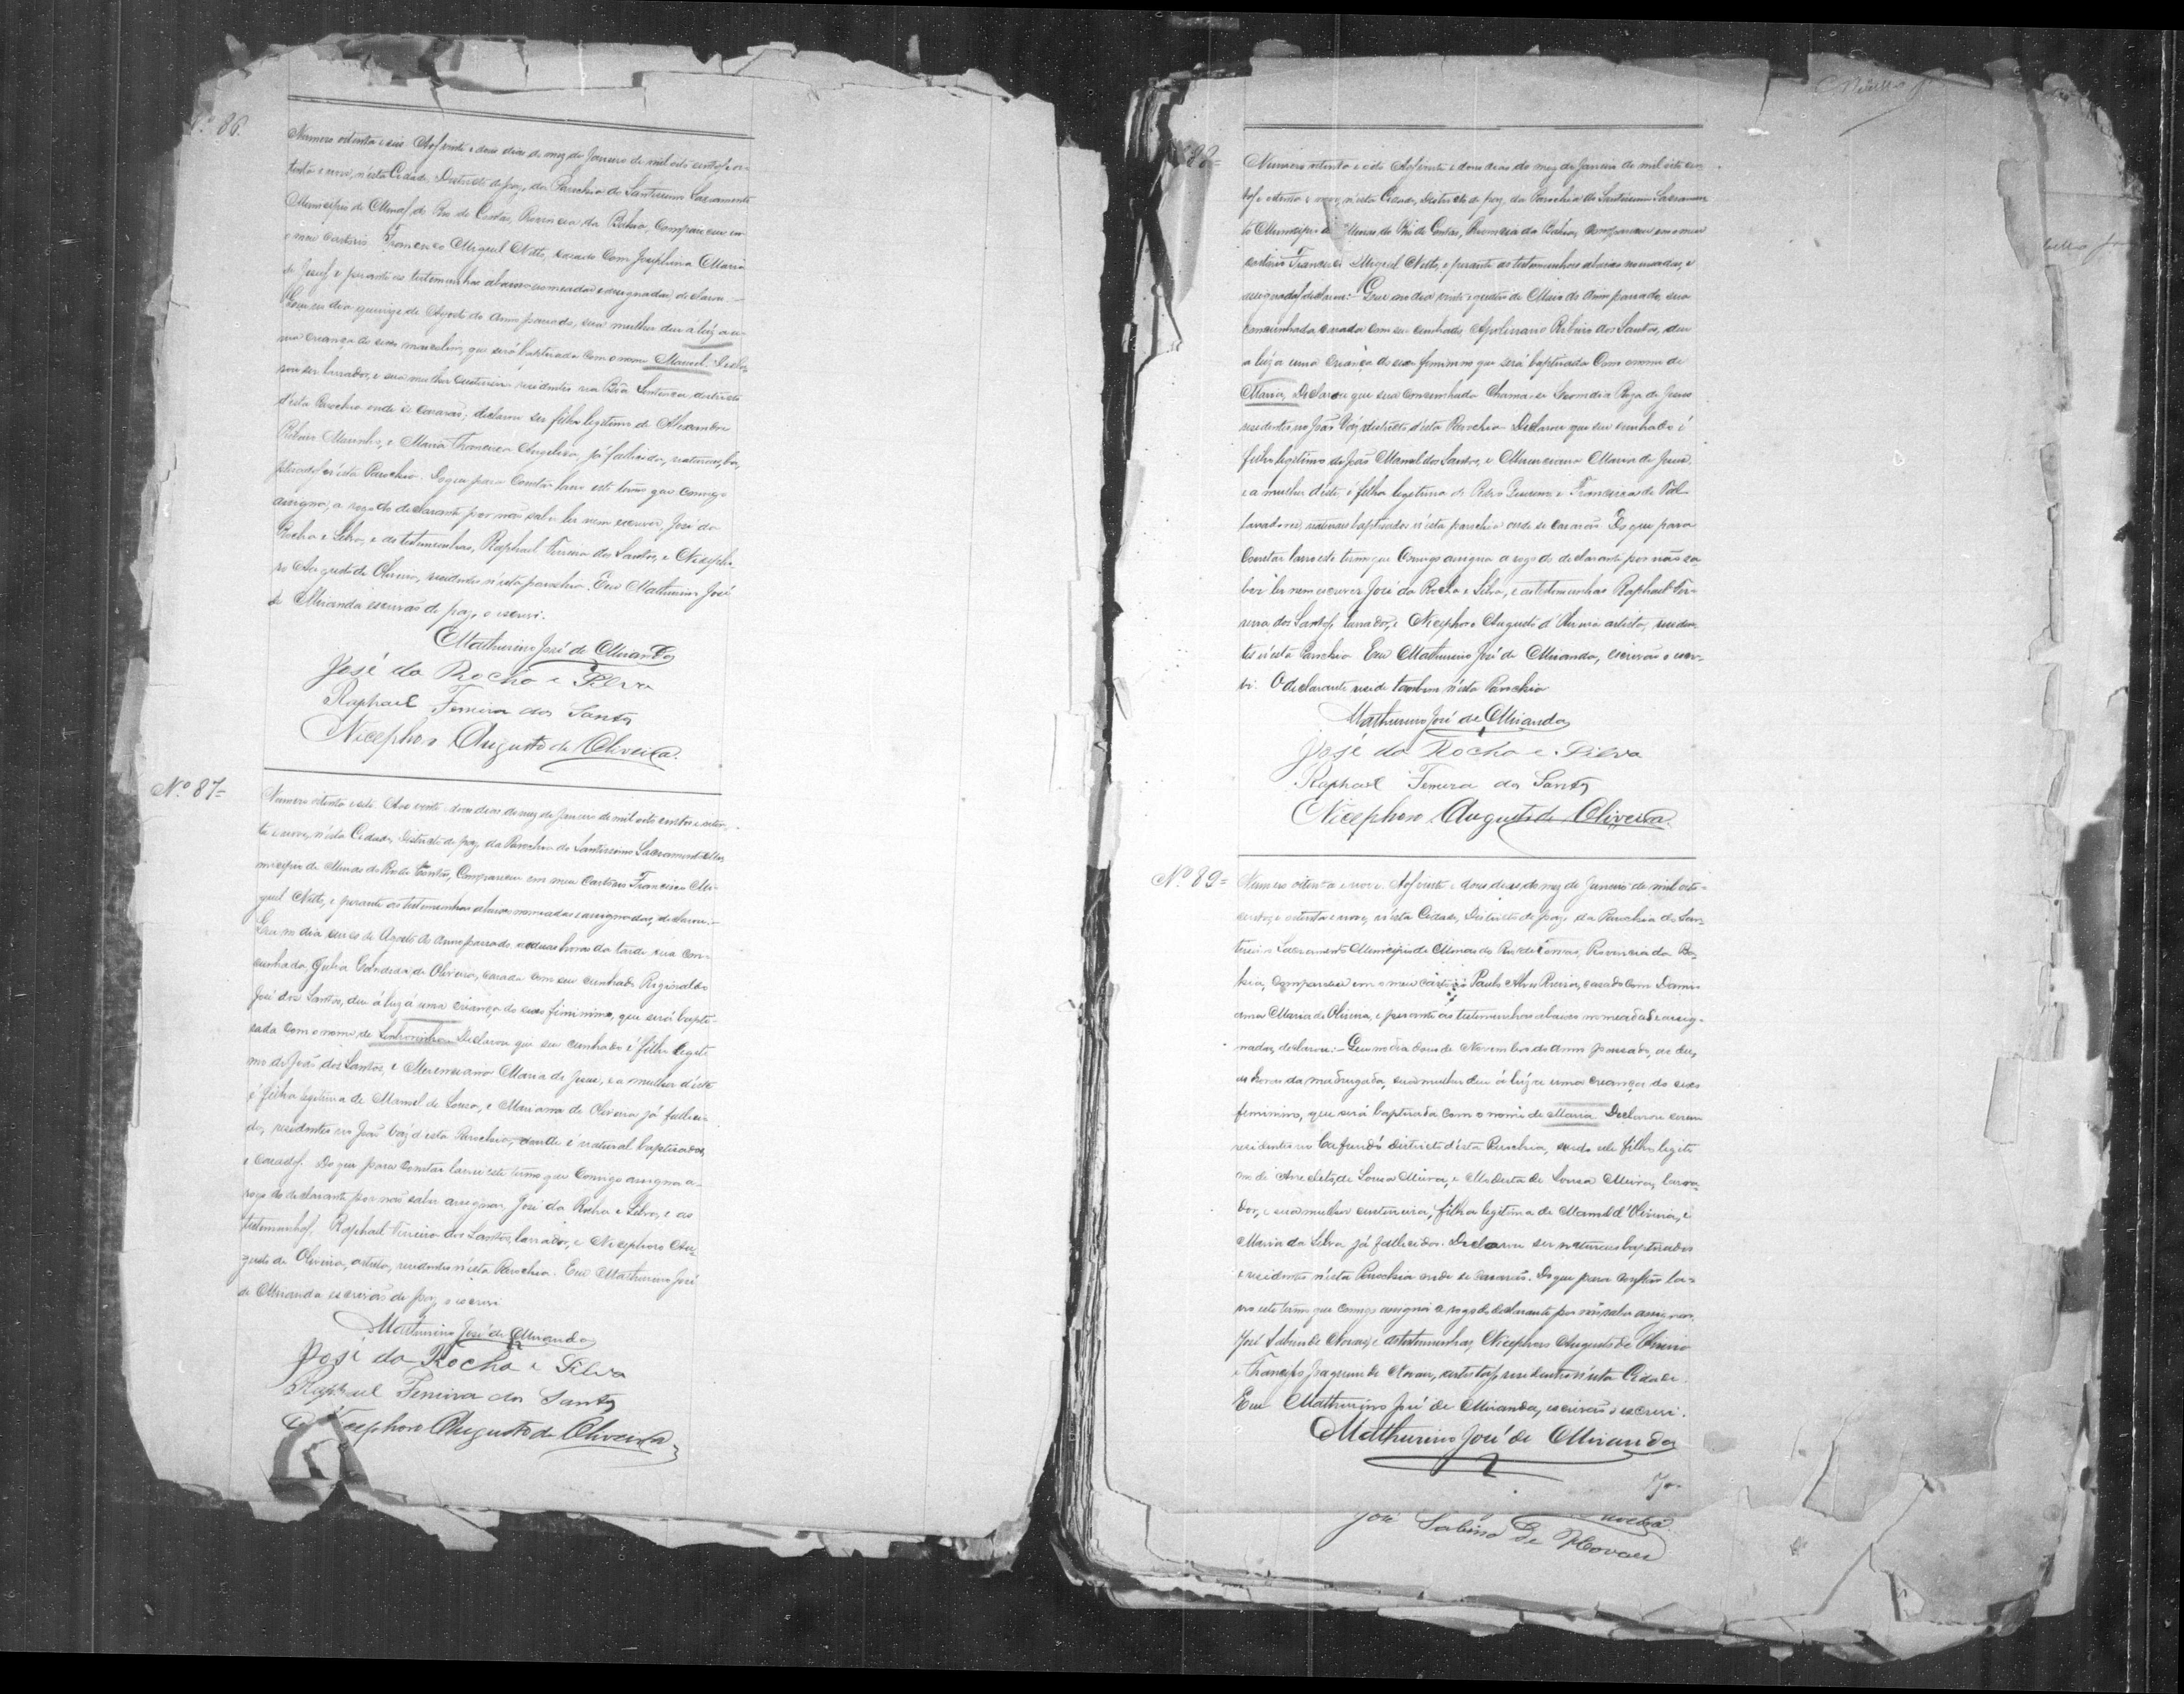 Nº 86.
Numero oitenta e seis. Aos vinte e dois dias do mez de Janeiro de mil oito centos e oi-
tenta e nove, n'esta Cidade, Districto de paz, da Parochia do Santissimo Sacramento
Municipio de Minas do Rio de Contas, Provincia da Bahia, Compareceu em
o meu Cartorio Francisco Miguel Netto, casado Com Josephina Maria
de Jesus, e perante as testemunhas abaixo nomeadas e assignadas, declarou:-
Que no dia quinze de Agosto do anno passado, sua mulher deu á luz a u-
ma criança do sexo masculino, que será baptisada Com o nome Manoel. Decla-
rou ser lavrador, e sua mulher custureira residentes na Bôa Sentença, districto
d'esta Parochia onde se casarão; declarou ser filho legitimo de Alexandre
Ribeiro Marinho, e Maria Francisca Angelica, já fallecida, naturaes, ba-
ptisados n'esta Parochia. Do que para Constar lavro este termo que Comigo
assigna, a rogo do declarante por não saber ler nem escrever, José da
Rocha e Silva, e as testemunhas, Raphael Ferreira dos Santos, e Nicepho-
ro Augusto de Oliveira, residentes n'esta parochia. Eu Mathurino José
de Miranda escrivão de paz, o escrevi.
Mathurino José de Miranda
José da Rocha e Silva
Raphael Ferreira dos Santos
Nicephoro Augusto de Oliveira.
Nº 87=
Numero oitenta e sete. Aos vinte e dous dias do mez de Janeiro de mil oito centos e oiten-
ta e nove, n'esta Cidade, Districto de paz, da Parochia do Santissimo Sacramento Mu-
nicipio de Minas do Rio de Contas, Compareceu em meu Cartorio Francisco Mi-
guel Netto, e perante as testemunhas abaixo nomeadas e assignadas, declarou:-
Que no dia de Agosto do anno passado as duas horas da tarde sua con-
cunhada, Julia Candida de Oliveira, casada com seu cunhado Reginaldo
José dos Santos, deu á luz á uma criança do sexo feminino, que será bapti-
sada com o nome de Declarou que seu cunhado é filho legiti-
mo de João dos Santos, e Merenciana Maria de Jesus, e a mulher d'este
é filha legitima de Manoel de Sousa, e Marianna de Oliveira já falleci-
da, residentes no João Vaz d'esta Parochia, donde é natural baptisados,
e Casados. Do que para Constar lavrei este termo que Comigo assigna a-
rogo do declarante por não saber assignar, José da Rocha e Silva, e as
testemunhas, Raphael Ferreira dos Santos, lavrador, e Nicephoro Au-
gusto de Oliveira, artista, residentes n'esta Parochia. Eu Mathurino José
de Miranda escrivão de paz, o escrevi
Mathurino José de Miranda
José da Rocha e Silva
Raphael Ferreira dos Santos
Nicephoro Augusto de Oliveira
Nº 88=
Numero oitenta e oito. Aos vinte e dous dias do mez de Janeiro de mil oito cen-
tos e oitenta e nove, n'esta Cidade, Districto de paz, da Parochia do Santissimo Sacramen-
to Municipio de Minas do Rio de Contas, Provincia da Bahia, Compareceu em o meu
cartorio Francisco Miguel Netto, e perante as testemunhas abaixo nomeadas, e
assignadas, declarou:- Que no dia vinte e quatro de Maio do anno passado, sua
concunhada casada com seu cunhado, Apolinario Ribeiro dos Santos, deu
a luz a uma criança do sexo feminino que será baptisada Com o nome de
Maria, Declarou que sua concunhada Chama-se Roza de Jesus
residentes, no João Vaz, districto, d'esta Parochia. Declarou que seu cunhado é
filho legitimo de João Manoel dos Santos, e Merenciana Maria de Jesus,
e a mulher d'este, é filha legitima de Pedro e Francisca de Tal
lavadores, naturaes baptisados n'esta parochia onde se casarão. Do que para
Constar lavro este termo que Comigo assigna a rogo do declarante por não sa-
ber ler nem escrever José da Rocha e Silva, e as testemunhas Raphael Fer-
reira dos Santos, lavrador, e Nicephoro Augusto d'Oliveira artista, residen-
tes n'esta Parochia. Eu Mathurino José de Miranda, escrivão o escre-
vi. O declarante reside tambem n'esta Parochia
Mathurino José de Miranda
José da Rocha e Silva
Raphael Ferreira dos Santos
Nicephoro Augusto de Oliveira.
Nº 89=
Numero oitenta e nove. Aos vinte e dous dias do mez de Janeiro de mil oito-
centos, e oitenta e nove, n'esta Cidade, Districto de paz, da Parochia do San-
tissimo Sacramento Municipio de Minas do Rio de Contas, Provincia da Ba-
hia, Compareceu em o meu cartorio Paulo Alves Pereira, casado Com Dami-
anna Maria de Oliveira, e perante as testemunhas abaixo nomeadas e assig-
nadas, declarou:- Que no dia dous de Novembro do anno passado, as
horas da madrugada, sua mulher deu á luz a uma criança do sexo
feminino, que será baptisada Com o nome de Maria. Declarou serem
residentes no Cafundó districto d'esta Parochia, sendo elle filho legiti-
mo de Anacleto de Sousa Meira, e Modesta de Sousa Meira, lavra-
dor, e sua mulher custureira, filha legitima de Manoel d'Oliveira, e
Maria da Silva já fallecidos. Declarou ser naturaes baptisados
e residentes n'esta Parochia onde se casarão. Do que para Constar la-
vro este termo que comigo assigna a rogo do declarante por não saber assignar,
José Sabino de Novaes, e as testemunhas, Nicephoro Augusto de Oliveira
e Francisco Joaquim de Novaes, artistas, residentes n'esta Cidade.
Eu Mathurino José de Miranda, escrivão o escrevi.
Mathurino José de Miranda
José Sabino de Novaes